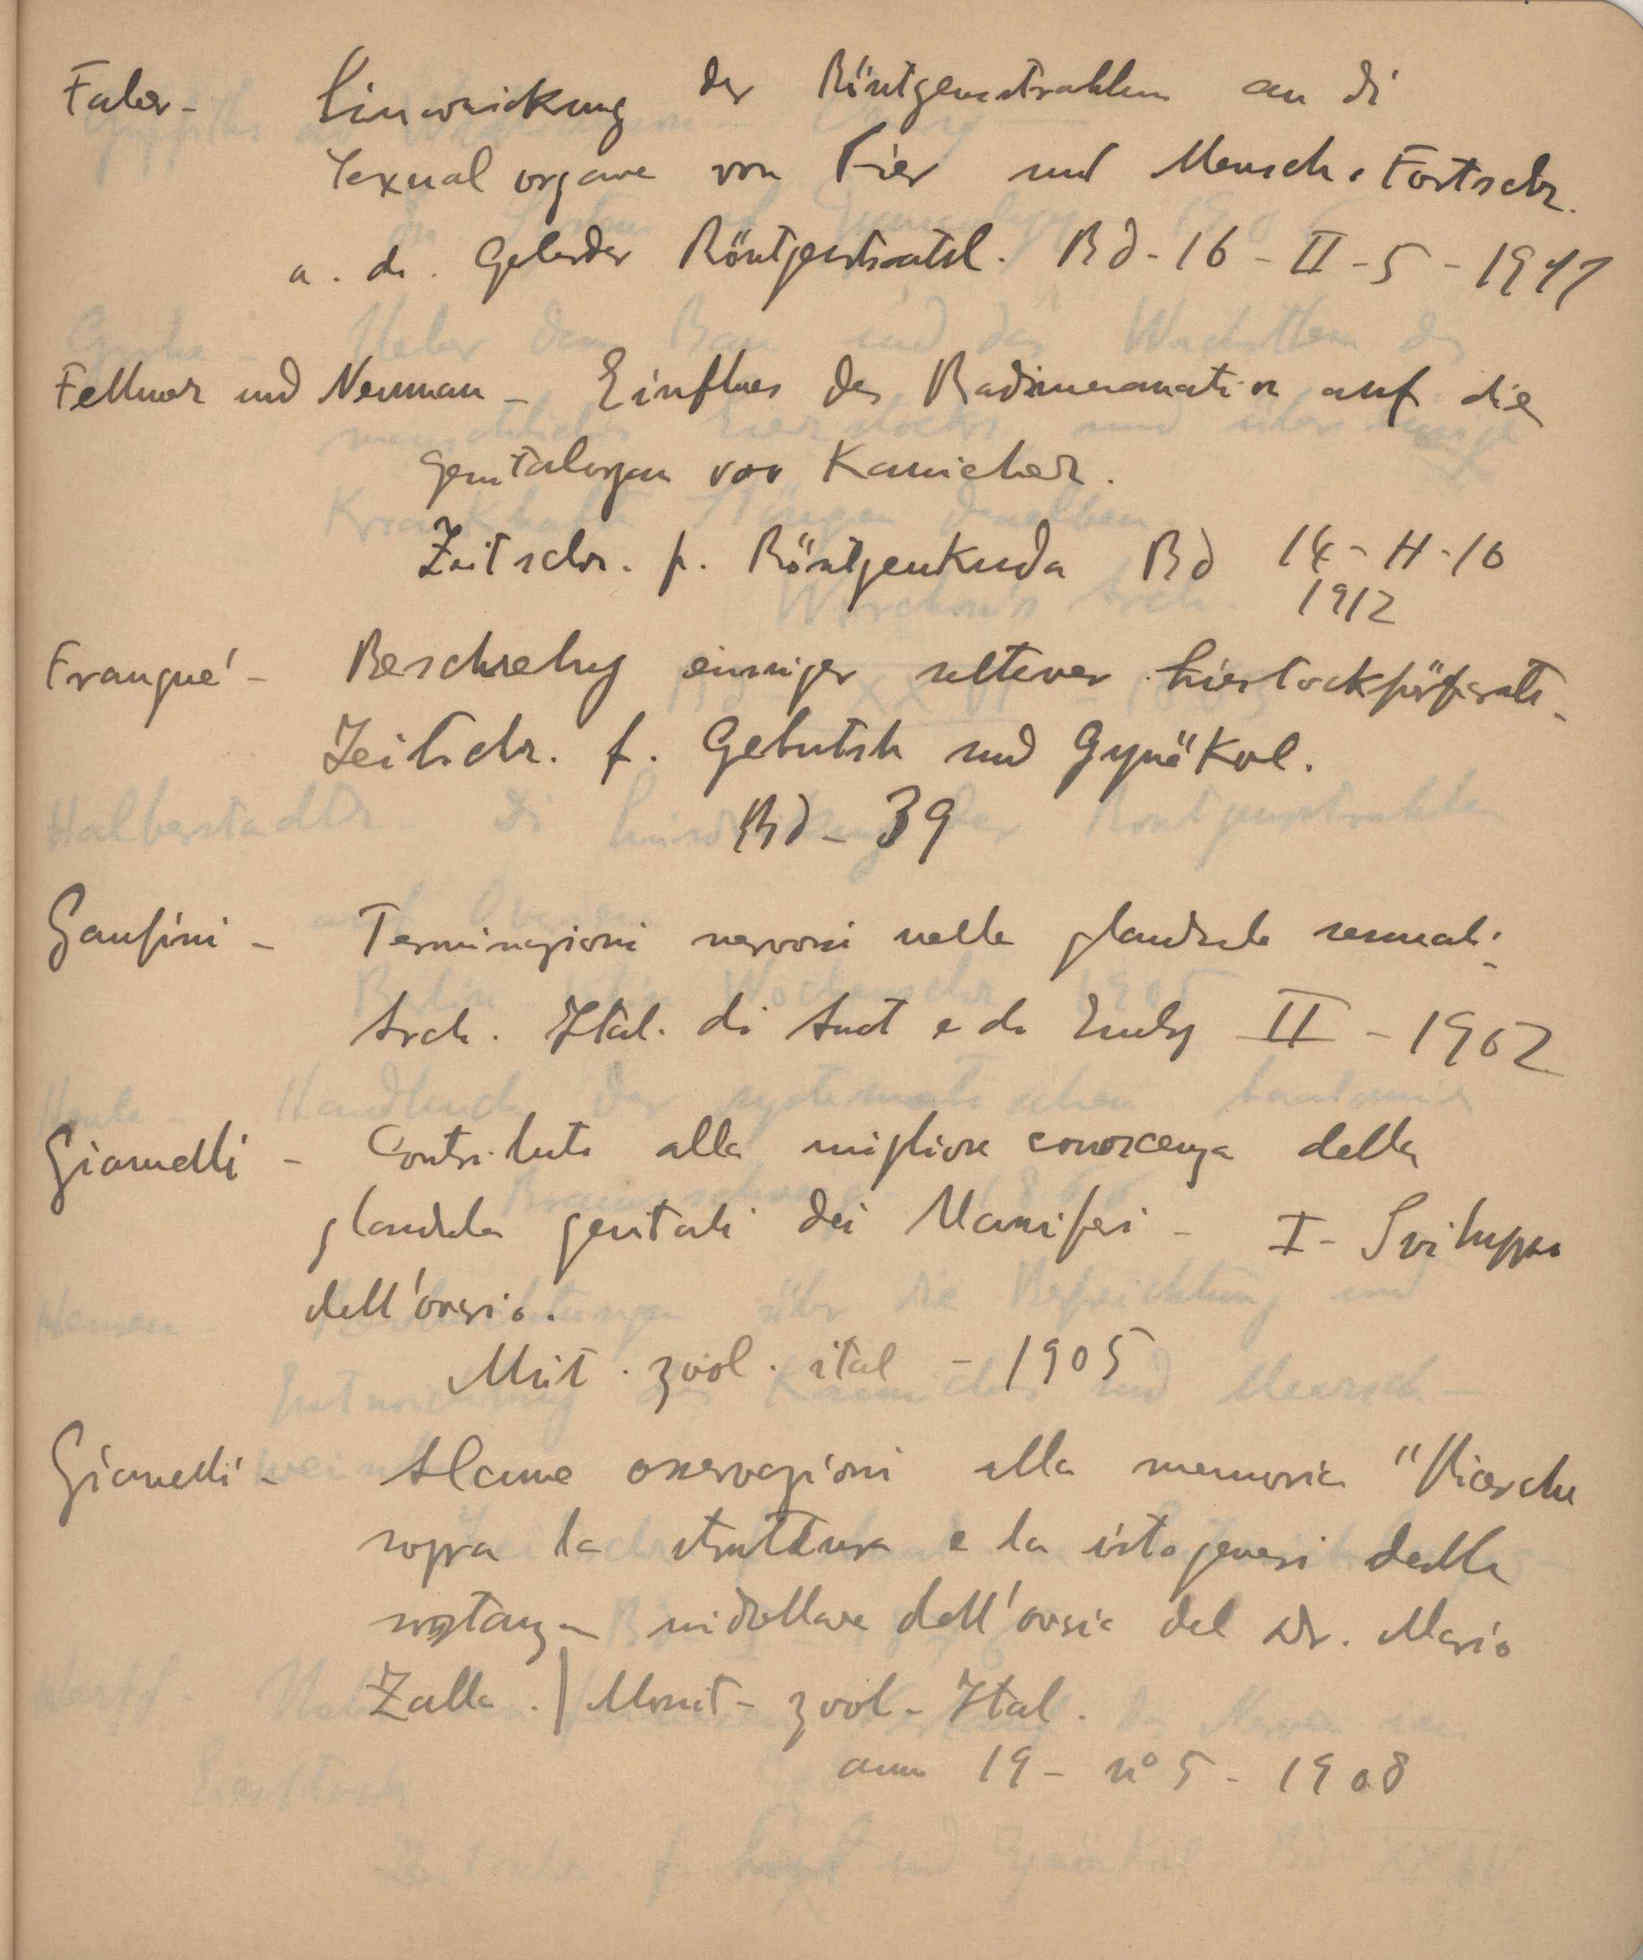 Faber - Einwirkung der Röntgenstrahlen an di
Sexual organe von Tier und Mensch. Fortschr.
a. d. Röntgenstrahl. Bd - 16 - II - 5 - 1911
Fellner und Neuman - Einfluss der Radiumemanation auf die
genitalorgan von Kanichen.
Zeitschr. f. Röntgenkunda Bd 14 - H - 10
1912
Franqué - Beschreibug einiger seltener Eierstockspräparate -
Zeitschr. f. Geburtsh und Gynäkol.
Bd - 39
Ganfini - Terminazioni nervosi nelle glandule sessuali.
Arch. Ital. di Anat e di Embry II - 1902
Giannelli - Contributo alla migliore conoscenza della
glandula genitali dei Mamiferi - I - Sviluppo
dell'ovario.
Mit. zool. ital - 1905
Gianelli - Alcune osservazioni alla memoria "Ricerche
sopra la struttura e la istogenesi della
sostanza midollare dell'ovario del Dr. Mario
Zalla. | Monit - zool - Ital.
ann 19 - nº 5 - 1908